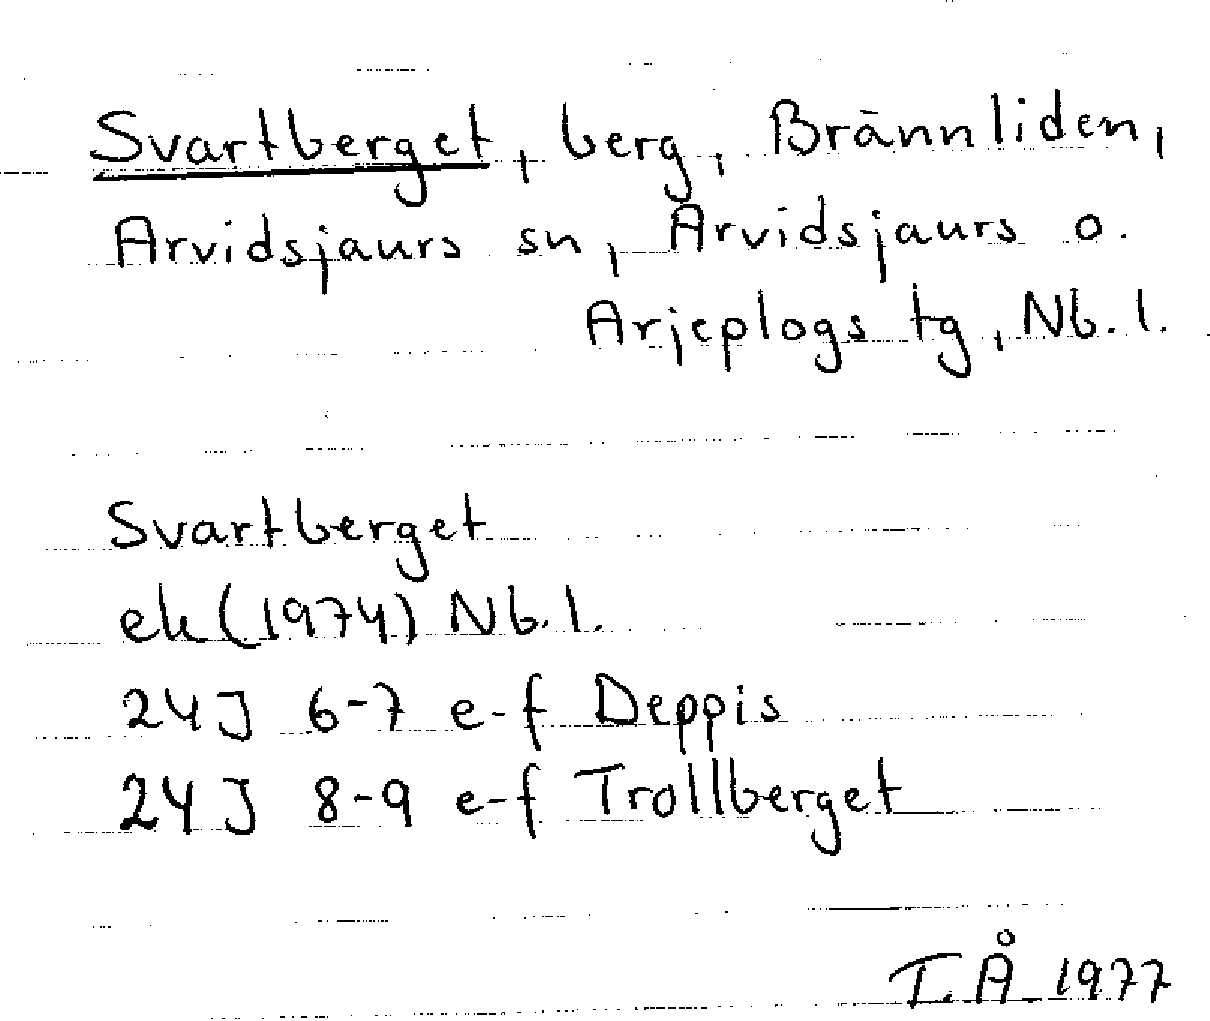 Svartberget, berg, Brännliden,
Arvidsjaurs sn, Arvidsjaurs o.
Arjeplogs tg, Nb.l.
Svartberget
ek (1974) Nb.l.
24J 6-7 e-f Deppis
24J 8-9 e-f Trollberget
T.Å 1977